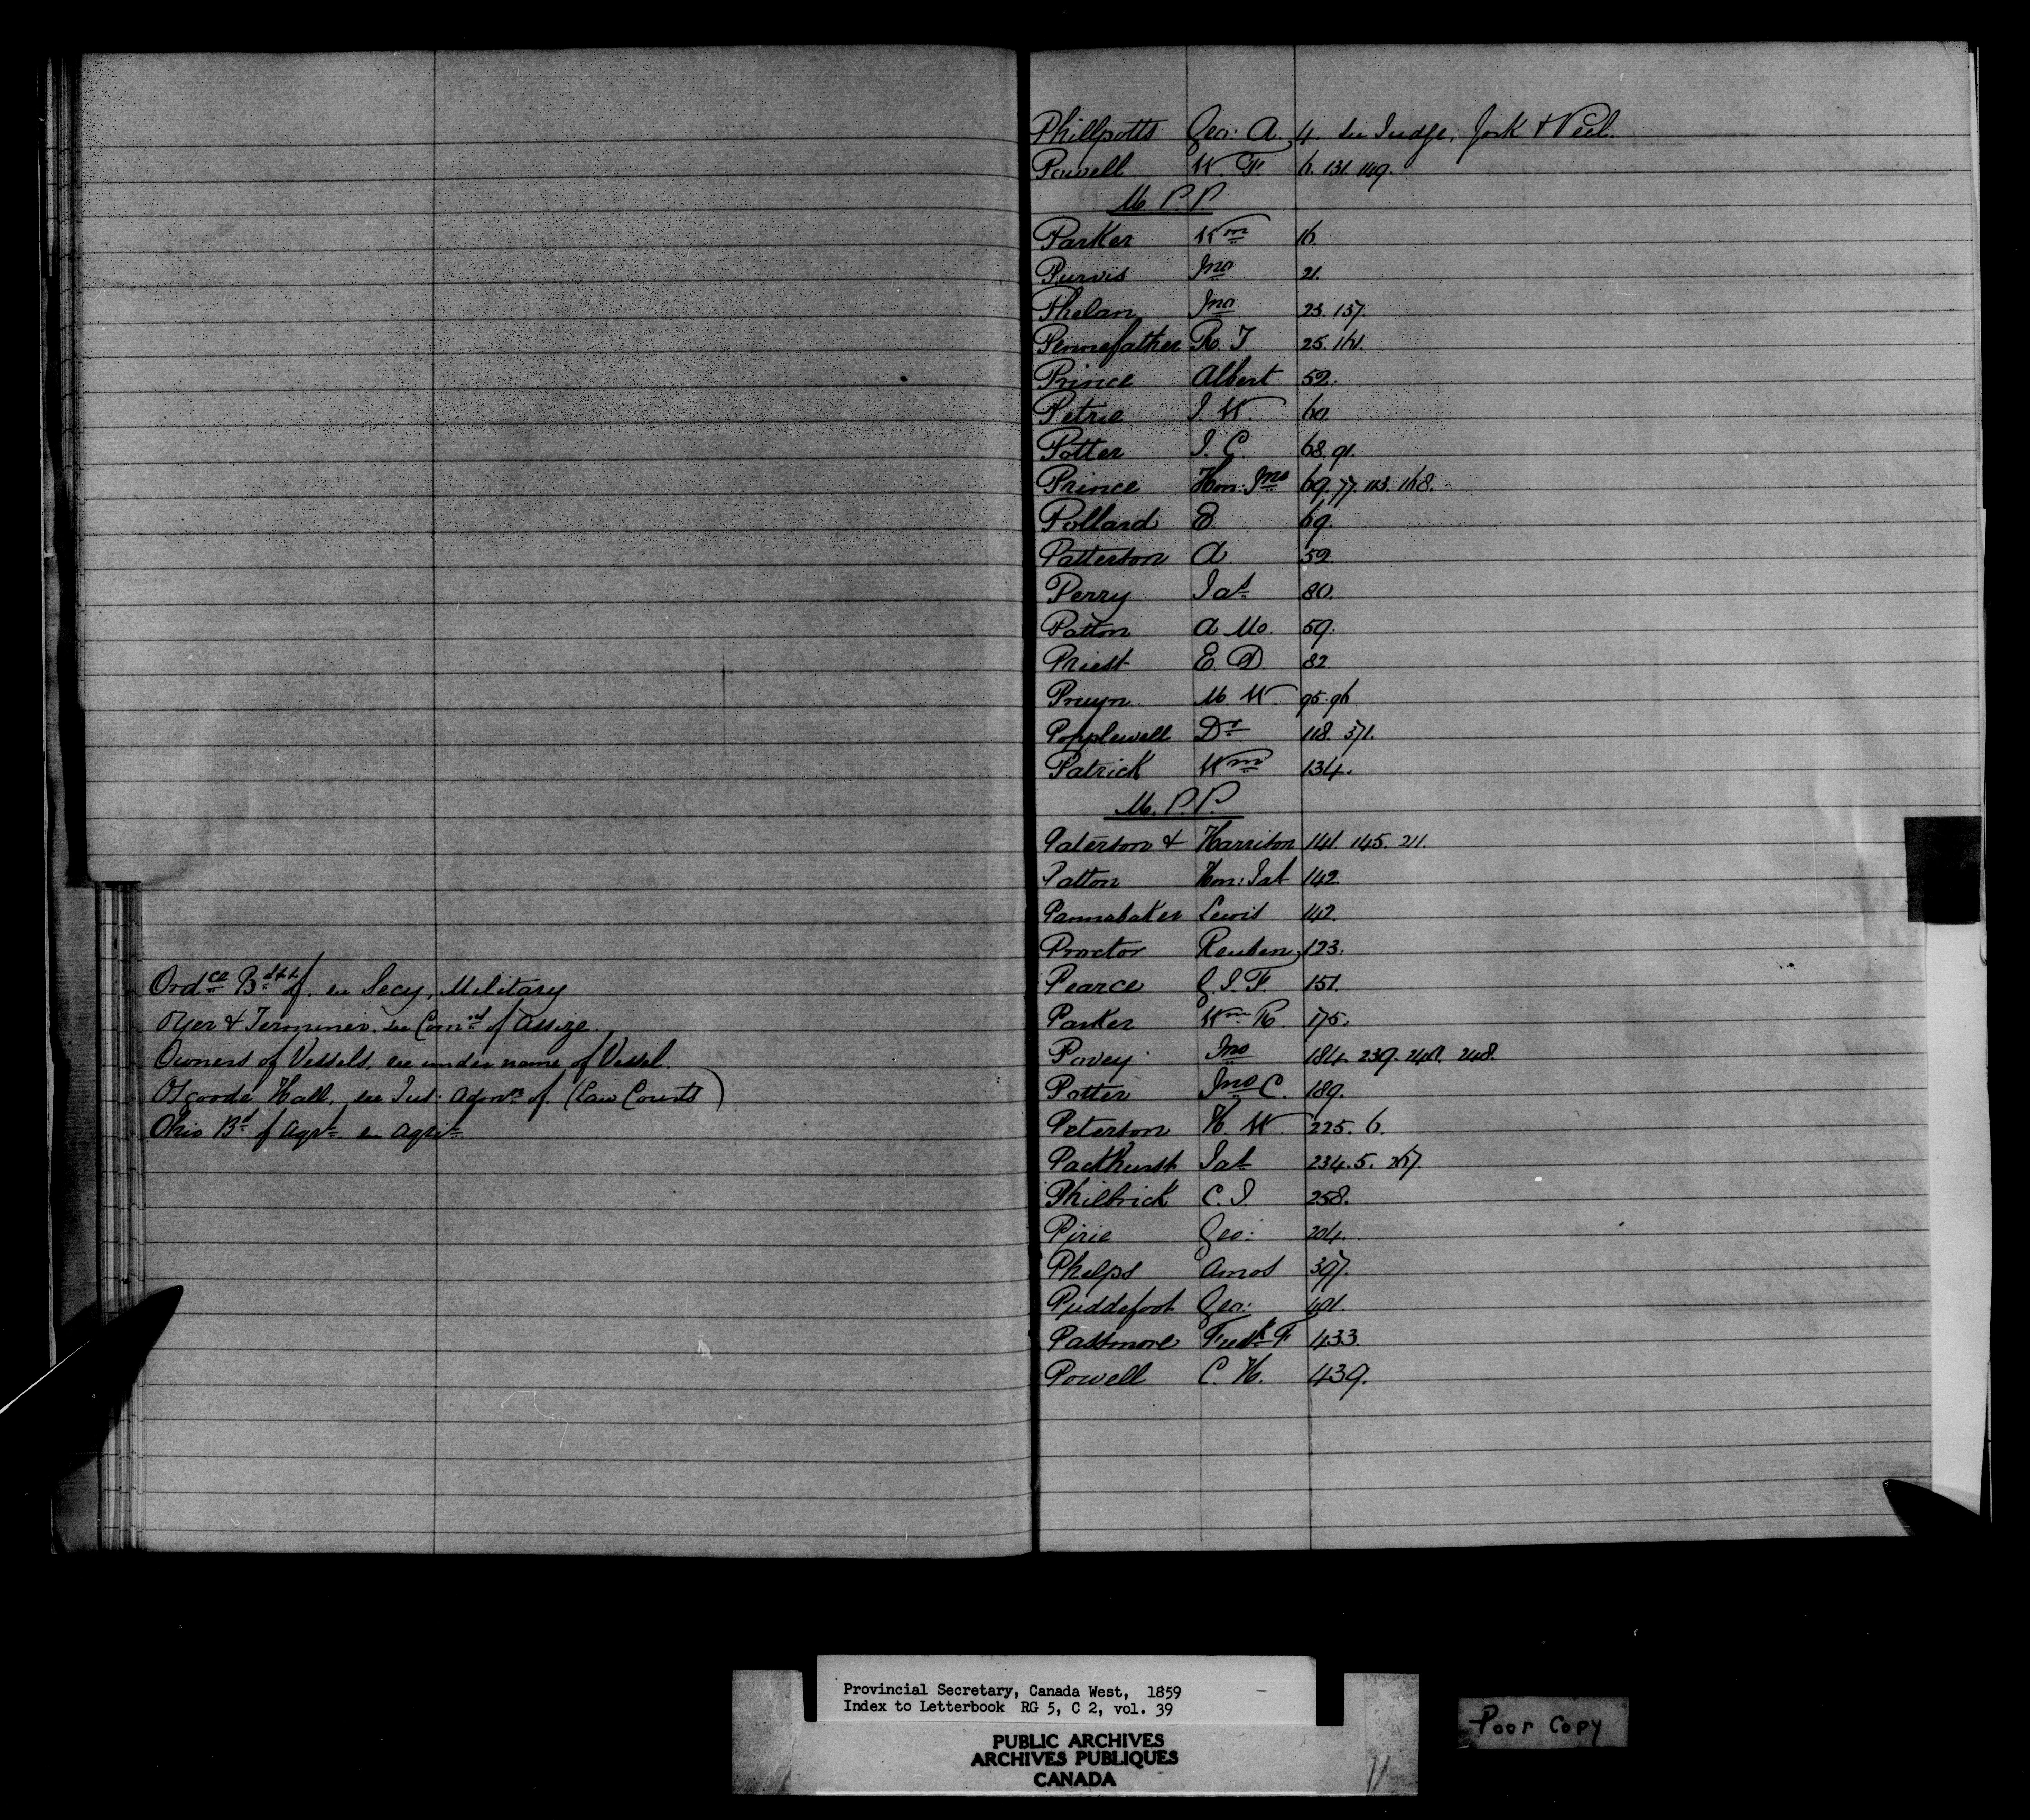 Ordce Bd of. see Secy, Military
Oyer & Terminer. see Comrs of Assize.
Owners of Vessels, see under name of Vessel.
Osgoode Hall, see Just: Admn of. (Law Courts)
Ohio Bd of Agre see Agre
Phillpotts Geo: A. 4. see Judge, York & Peel.
Powell W. F. 6. 131. 149.
M. P. P
Parker Wm 16.
Purvis Jno 21.
Phelan Jno 23. 137.
Pennefather R. T. 25. 161.
Prince Albert 52.
Petrie J. W. 60.
Potter J. C. 68. 91.
Prince Hon: Jno 69. 77. 113. 168.
Pollard E. 69.
Patterson A. 52.
Perry Jas 80.
Patton A Mc. 59.
Priest E D 82
Pruyn M. W. 95. 96
Popplewell Dr 118. 371.
Patrick Wm 134.
M. P. P.
Paterson & Harrison 141. 145. 211.
Patton Hon: Jas 142
Pannabaker Lewis 142.
Proctor Reuben 123.
Pearce G. J. F. 151.
Parker Wm R. 175.
Povey Jno 184. 239. 248.
Potter Jno C. 189.
Peterson H W 225. 6.
Packhurst Jas 234. 5. 267.
Philbrick C. J. 258.
Pirie Geo: 204.
Phelps Amos 397.
Puddefoot Geo: 401.
Passmore Fredk F 433.
Powell C. H. 439.
Provincial Secretary, Canada West, 1859
Index to Letterbook RG 5, C 2, vol. 39
PUBLIC ARCHIVES
ARCHIVES PUBLIQUES
CANADA
Poor Copy